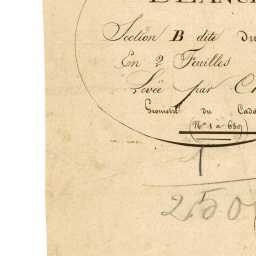 Section B dite du
En 2 Feuilles
Levée par
Géometre du Cada
N.os 1 à 680
1
250